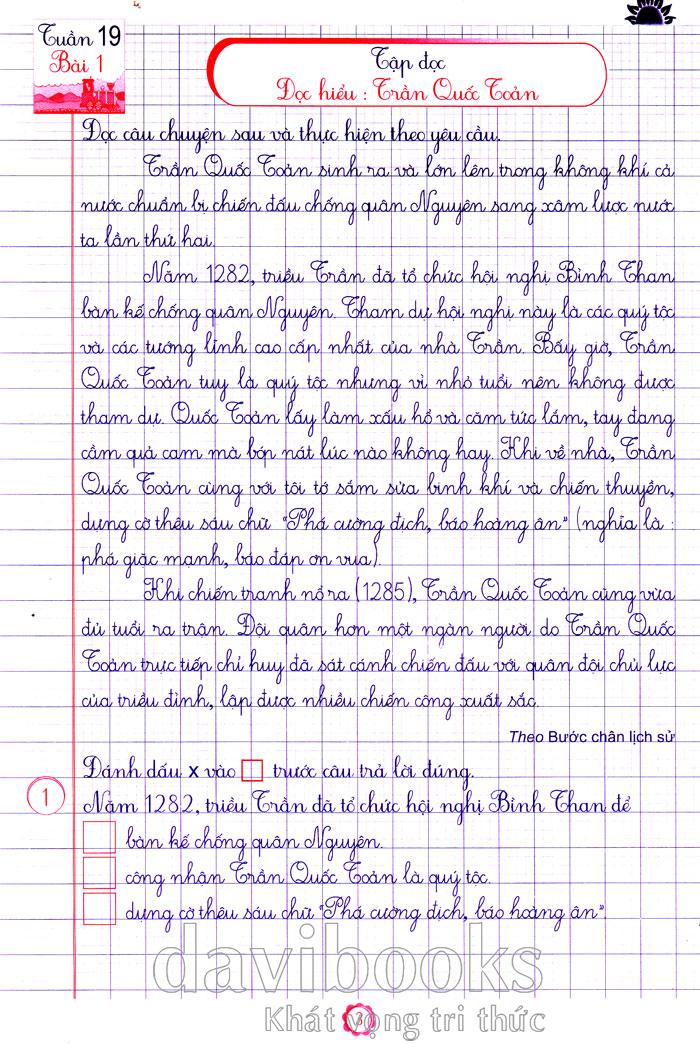 Tuần 19
Bài 1
Tập đọc
Đọc hiểu : Trần Quốc Toản
Đọc câu chuyện sau và thực hiện theo yêu cầu.
Trần Quốc Toản sinh ra và lớn lên trong không khí cả
nước chuẩn bị chiến đấu chống quân Nguyên sang xâm lược nước
ta lần thứ hai.
Năm 1282, triều Trần đã tổ chức hội nghị Bình Than
bàn kế chống quân Nguyên. Tham dự hội nghị này là các quý tộc
và các tướng lĩnh cao cấp nhất của nhà Trần. Bấy giờ, Trần
Quốc Toản tuy là quý tộc nhưng vì nhỏ tuổi nên không được
tham dự. Quốc Toản lấy làm xấu hổ và căm tức lắm, tay đang
cầm quả cam mà bóp nát lúc nào không hay. Khi về nhà, Trần
Quốc Toản cùng với tôi tớ sắm sửa binh khí và chiến thuyền,
dựng cờ thêu sáu chữ “Phá cường địch, báo hoàng ân” (nghĩa là :
phá giặc mạnh, báo đáp ơn vua).
Khi chiến tranh nổ ra (1285), Trần Quốc Toản cũng vừa
đủ tuổi ra trận. Đội quân hơn một ngàn người do Trần Quốc
Toản trực tiếp chỉ huy đã sát cánh chiến đấu với quân đội chủ lực
của triều đình, lập được nhiều chiến công xuất sắc.
Theo Bước chân lịch sử
Đánh dấu x vào trước câu trả lời đúng.
1
Năm 1282, triều Trần đã tổ chức hội nghị Bình Than để
bàn kế chống quân Nguyên.
công nhận Trần Quốc Toản là quý tộc.
dựng cờ thêu sáu chữ “Phá cường địch, báo hoàng ân”.
davibooks
Khát vọng tri thức
3